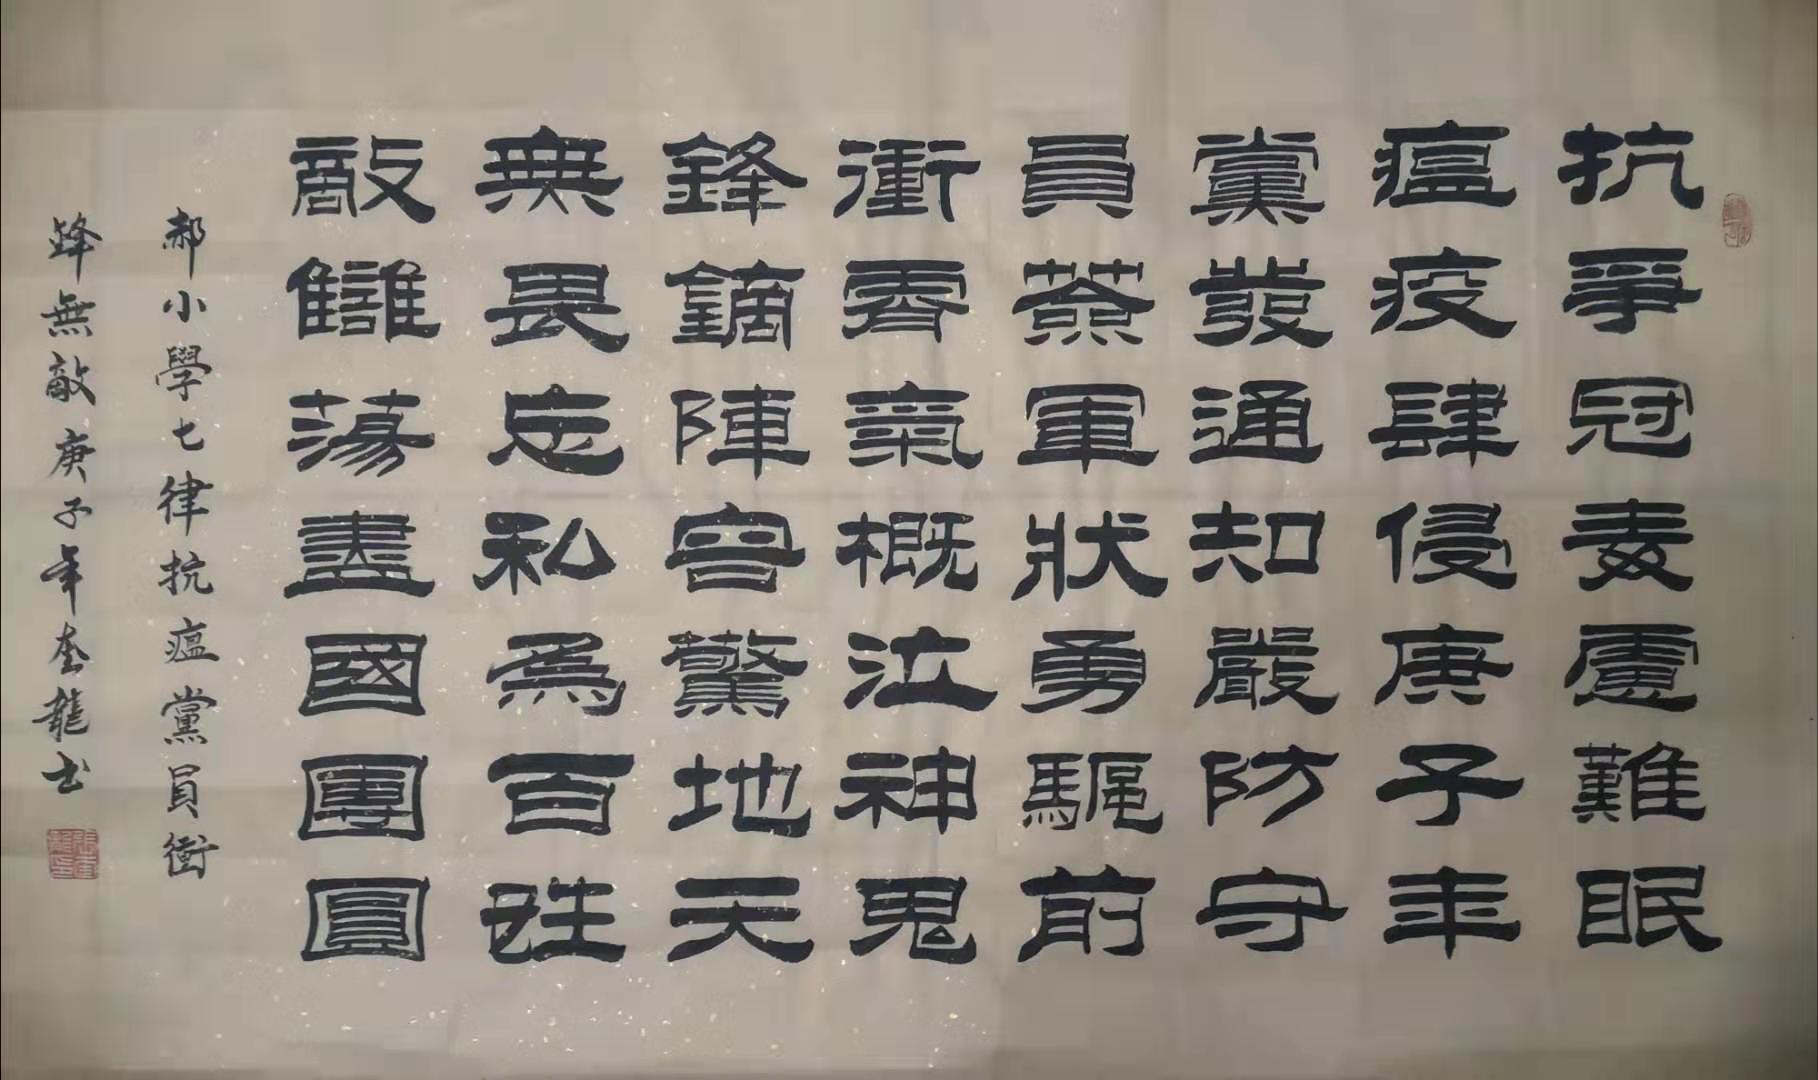 抗爭冠毒慮難眠
瘟疫肆侵庚子年
黨發通知嚴防守
員軍狀勇驅前
衝霄氣概泣神鬼
鋒鏑陣容驚地天
無畏忘私爲百姓
敵讎蕩盡國團圓
郝小學七律抗瘟黨員衝
鋒無敵庚子年奎龍书